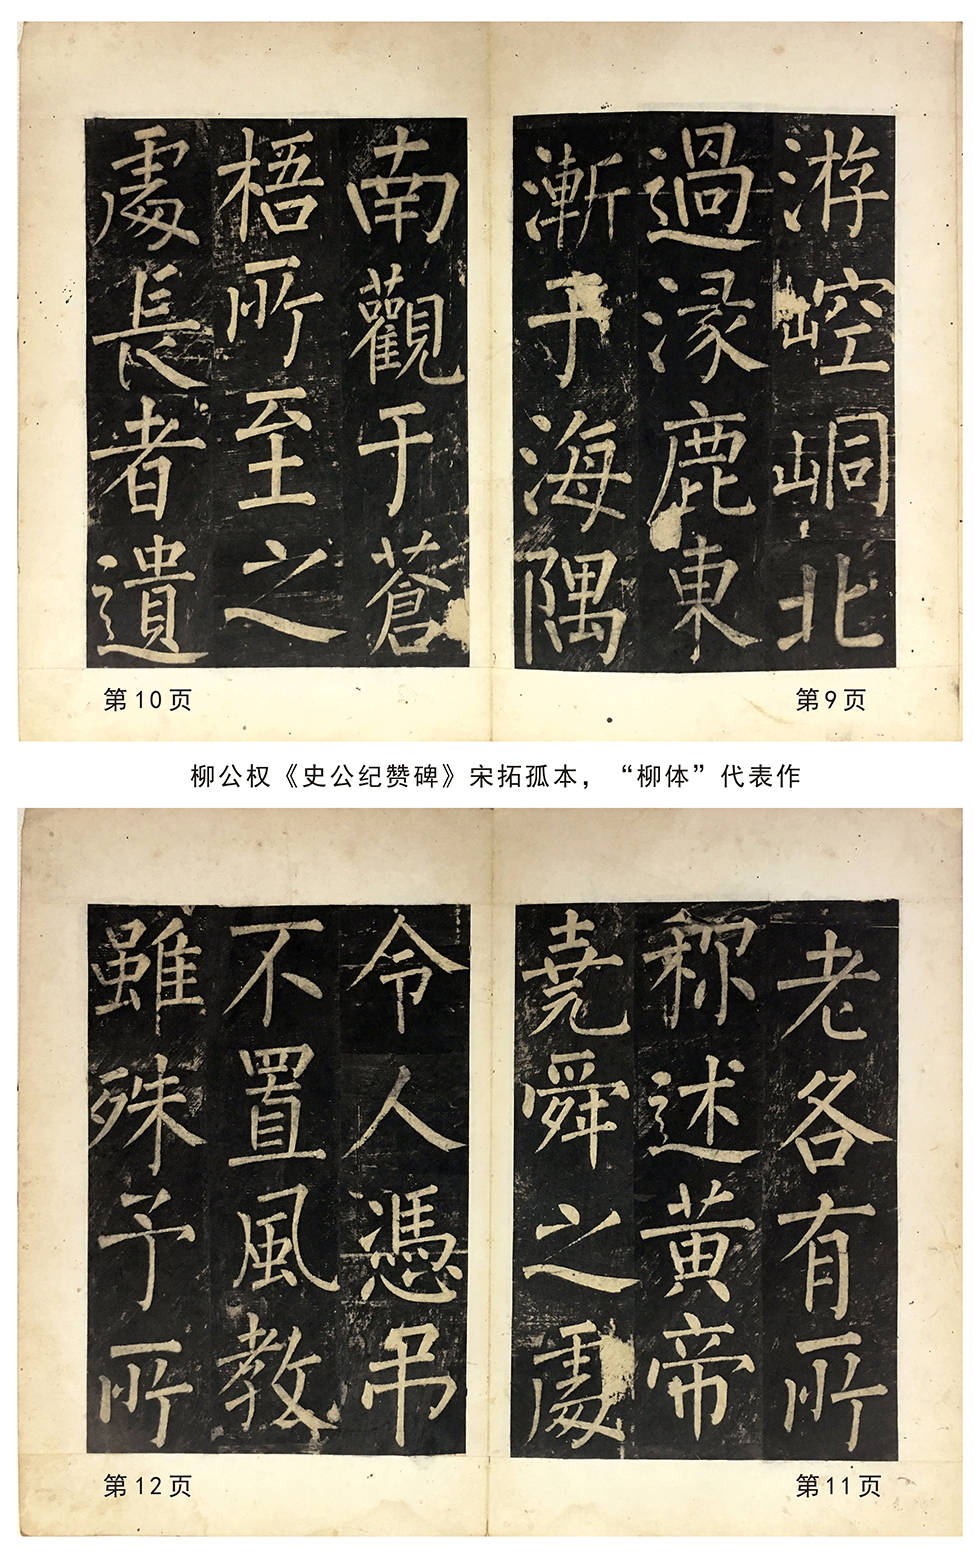 游崆峒北
過涿鹿東
漸于海隅
南觀于蒼
梧所至之
處長者遺
第9页
第10页
柳公权《史公纪赞碑》宋拓孤本，“柳体”代表作
老各有所
称述黄帝
堯舜之處
令人憑吊
不置風教
雖殊予所
第11页
第12页